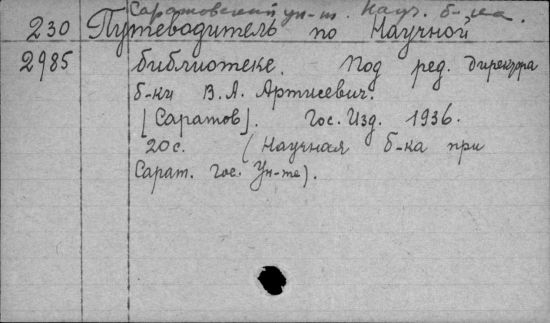 Саратовский ун-т. Науч. б-ка.
230 Путеводитель по Научной
2985 библиотеке. Под ред. Директора
б-ки В. А. Артисевич.
[Саратов]. Гос. Изд. 1936.
20 с. (Научная б-ка при
Сарат. Гос. Ун-те).